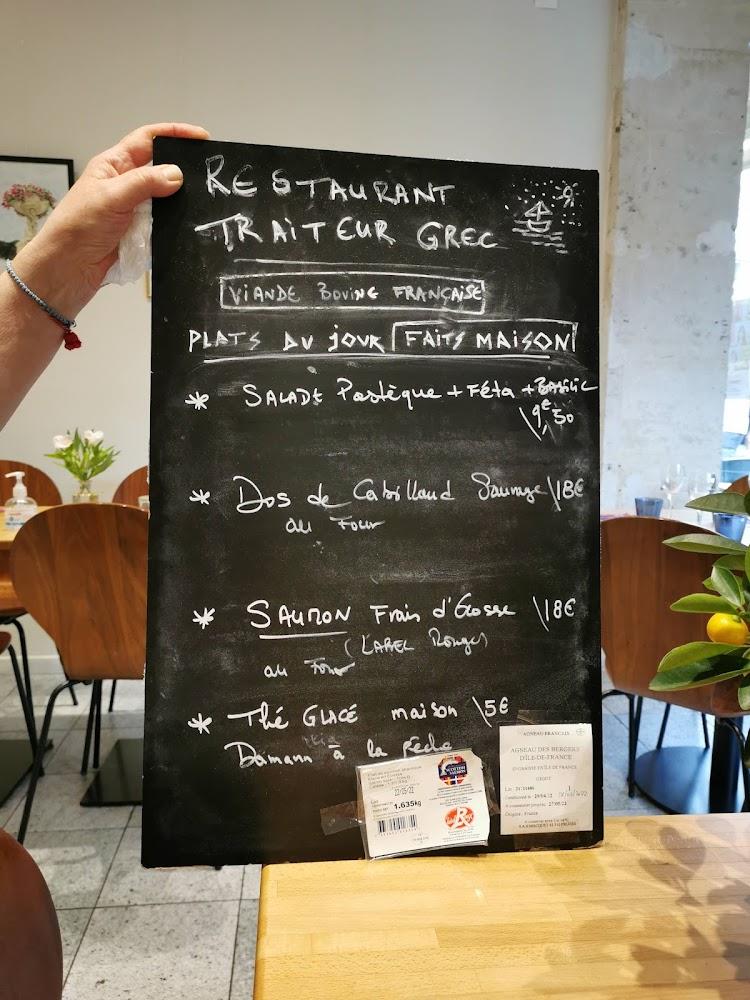 RESTAURANT
TRAiTEUR GREC
VIANDE BOVINE FRANÇAISE
PLATS DU JOUR FAITS MAISON
* SALADE Pastèque + Féta + BASILIC
9€,50
* Dos de Cabillaud Sauvage 18€
au Four
* SAUMON Frais d'Écosse 18€
(LABEL Rouge)
au Four
* Thé GLACÉ maison 5€
Damann à la Pêche
AGNEAU FRANCAIS
AGNEAU DES BERGERS
D'ILE-DE-FRANCE
GIGOT
Origine: France
SCOTTISH
SALMON
Lot
22/05/22
1.635kg